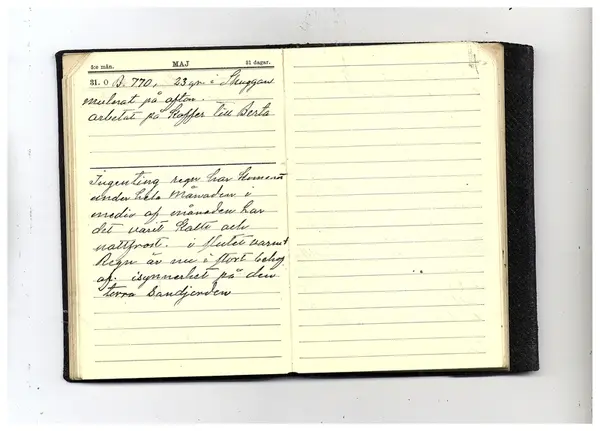 5:e mån. MAJ 31 dagar.
31. O B. 770, 23 gr. i Skuggan
mulnat på afton.
arbetat på Koffer till Berta
Ingenting regn har
under hela Månaden i
medio af månaden har
det varit Kallt och
nattfrost. i slutet varmt
Regn är nu i stort behof
af. isynnerhet på den
torra Sandjorden